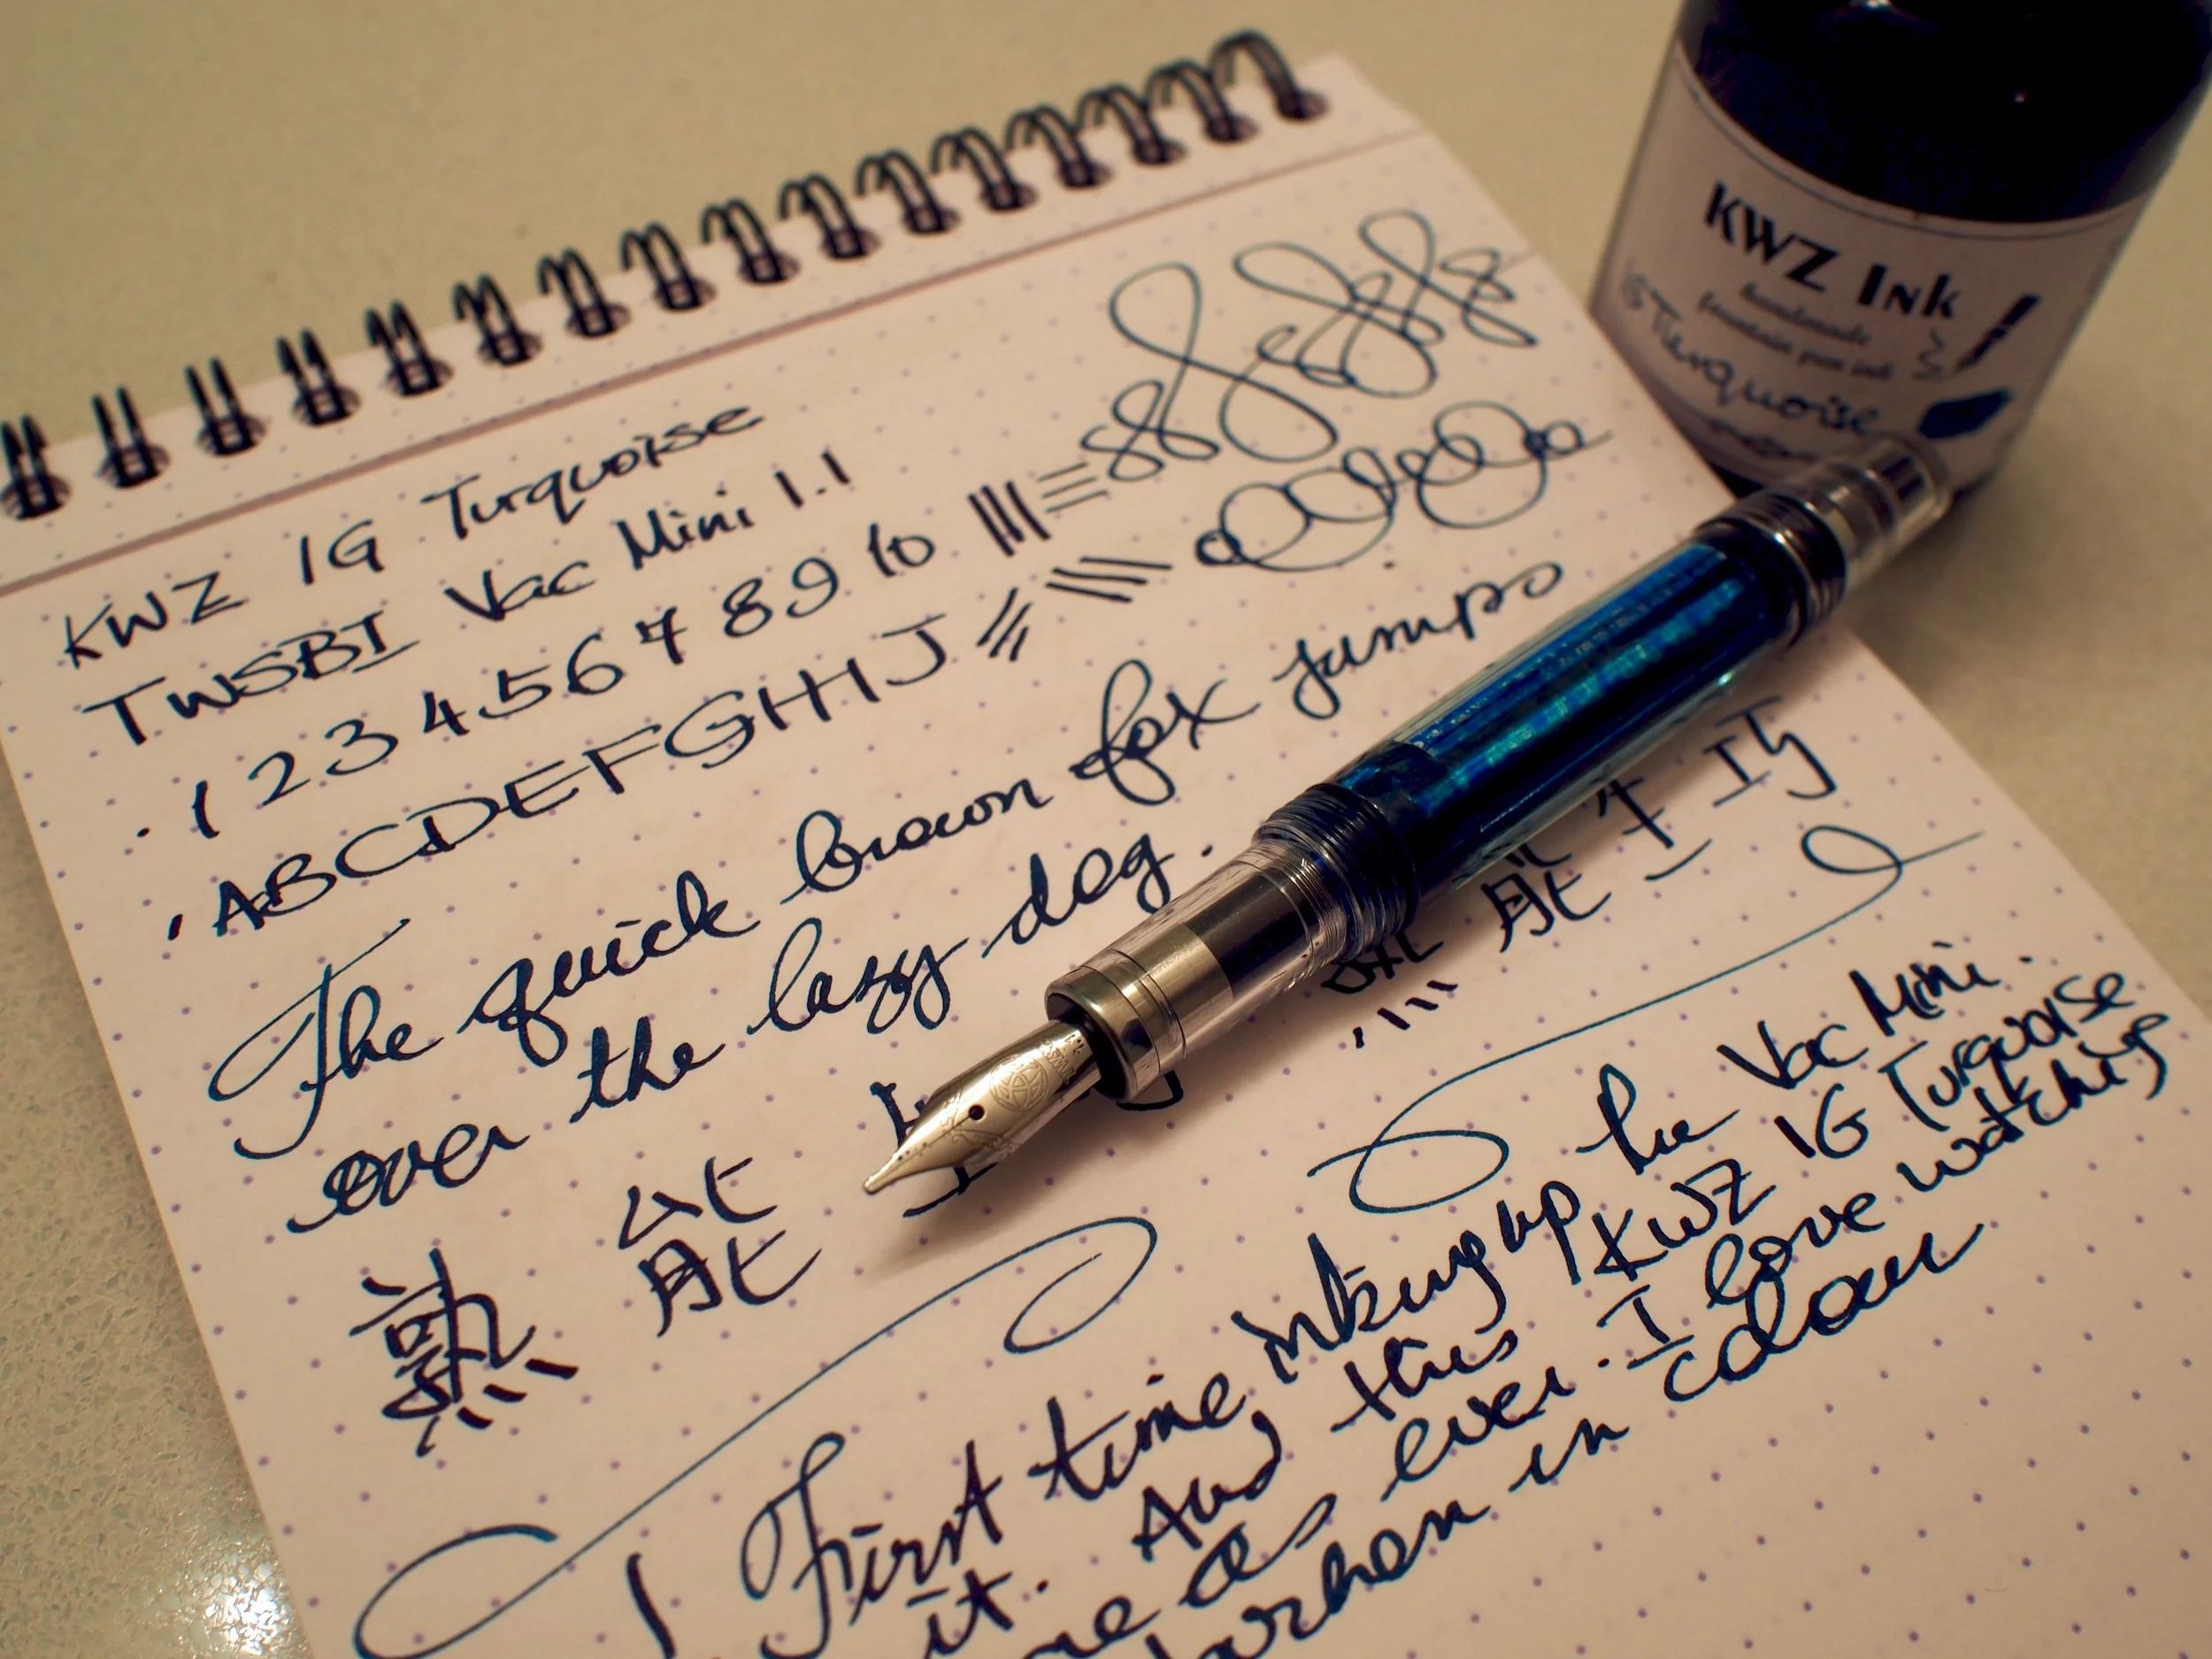 KWZ IG Turquoise
TWSBI Vac Mini 1.1
1 2 3 4 5 6 7 8 9 10
ABCDEFGHIJ
The quick brown fox jumps
over the lazy dog.
熟 能 生 巧
能 生 巧
First time inking up the Vac Mini.
it. And this KWZ IG Turquoise
as ever. I love watching it
darken in colour
KWZ Ink
handmade
fountain pen ink
IG Turquoise